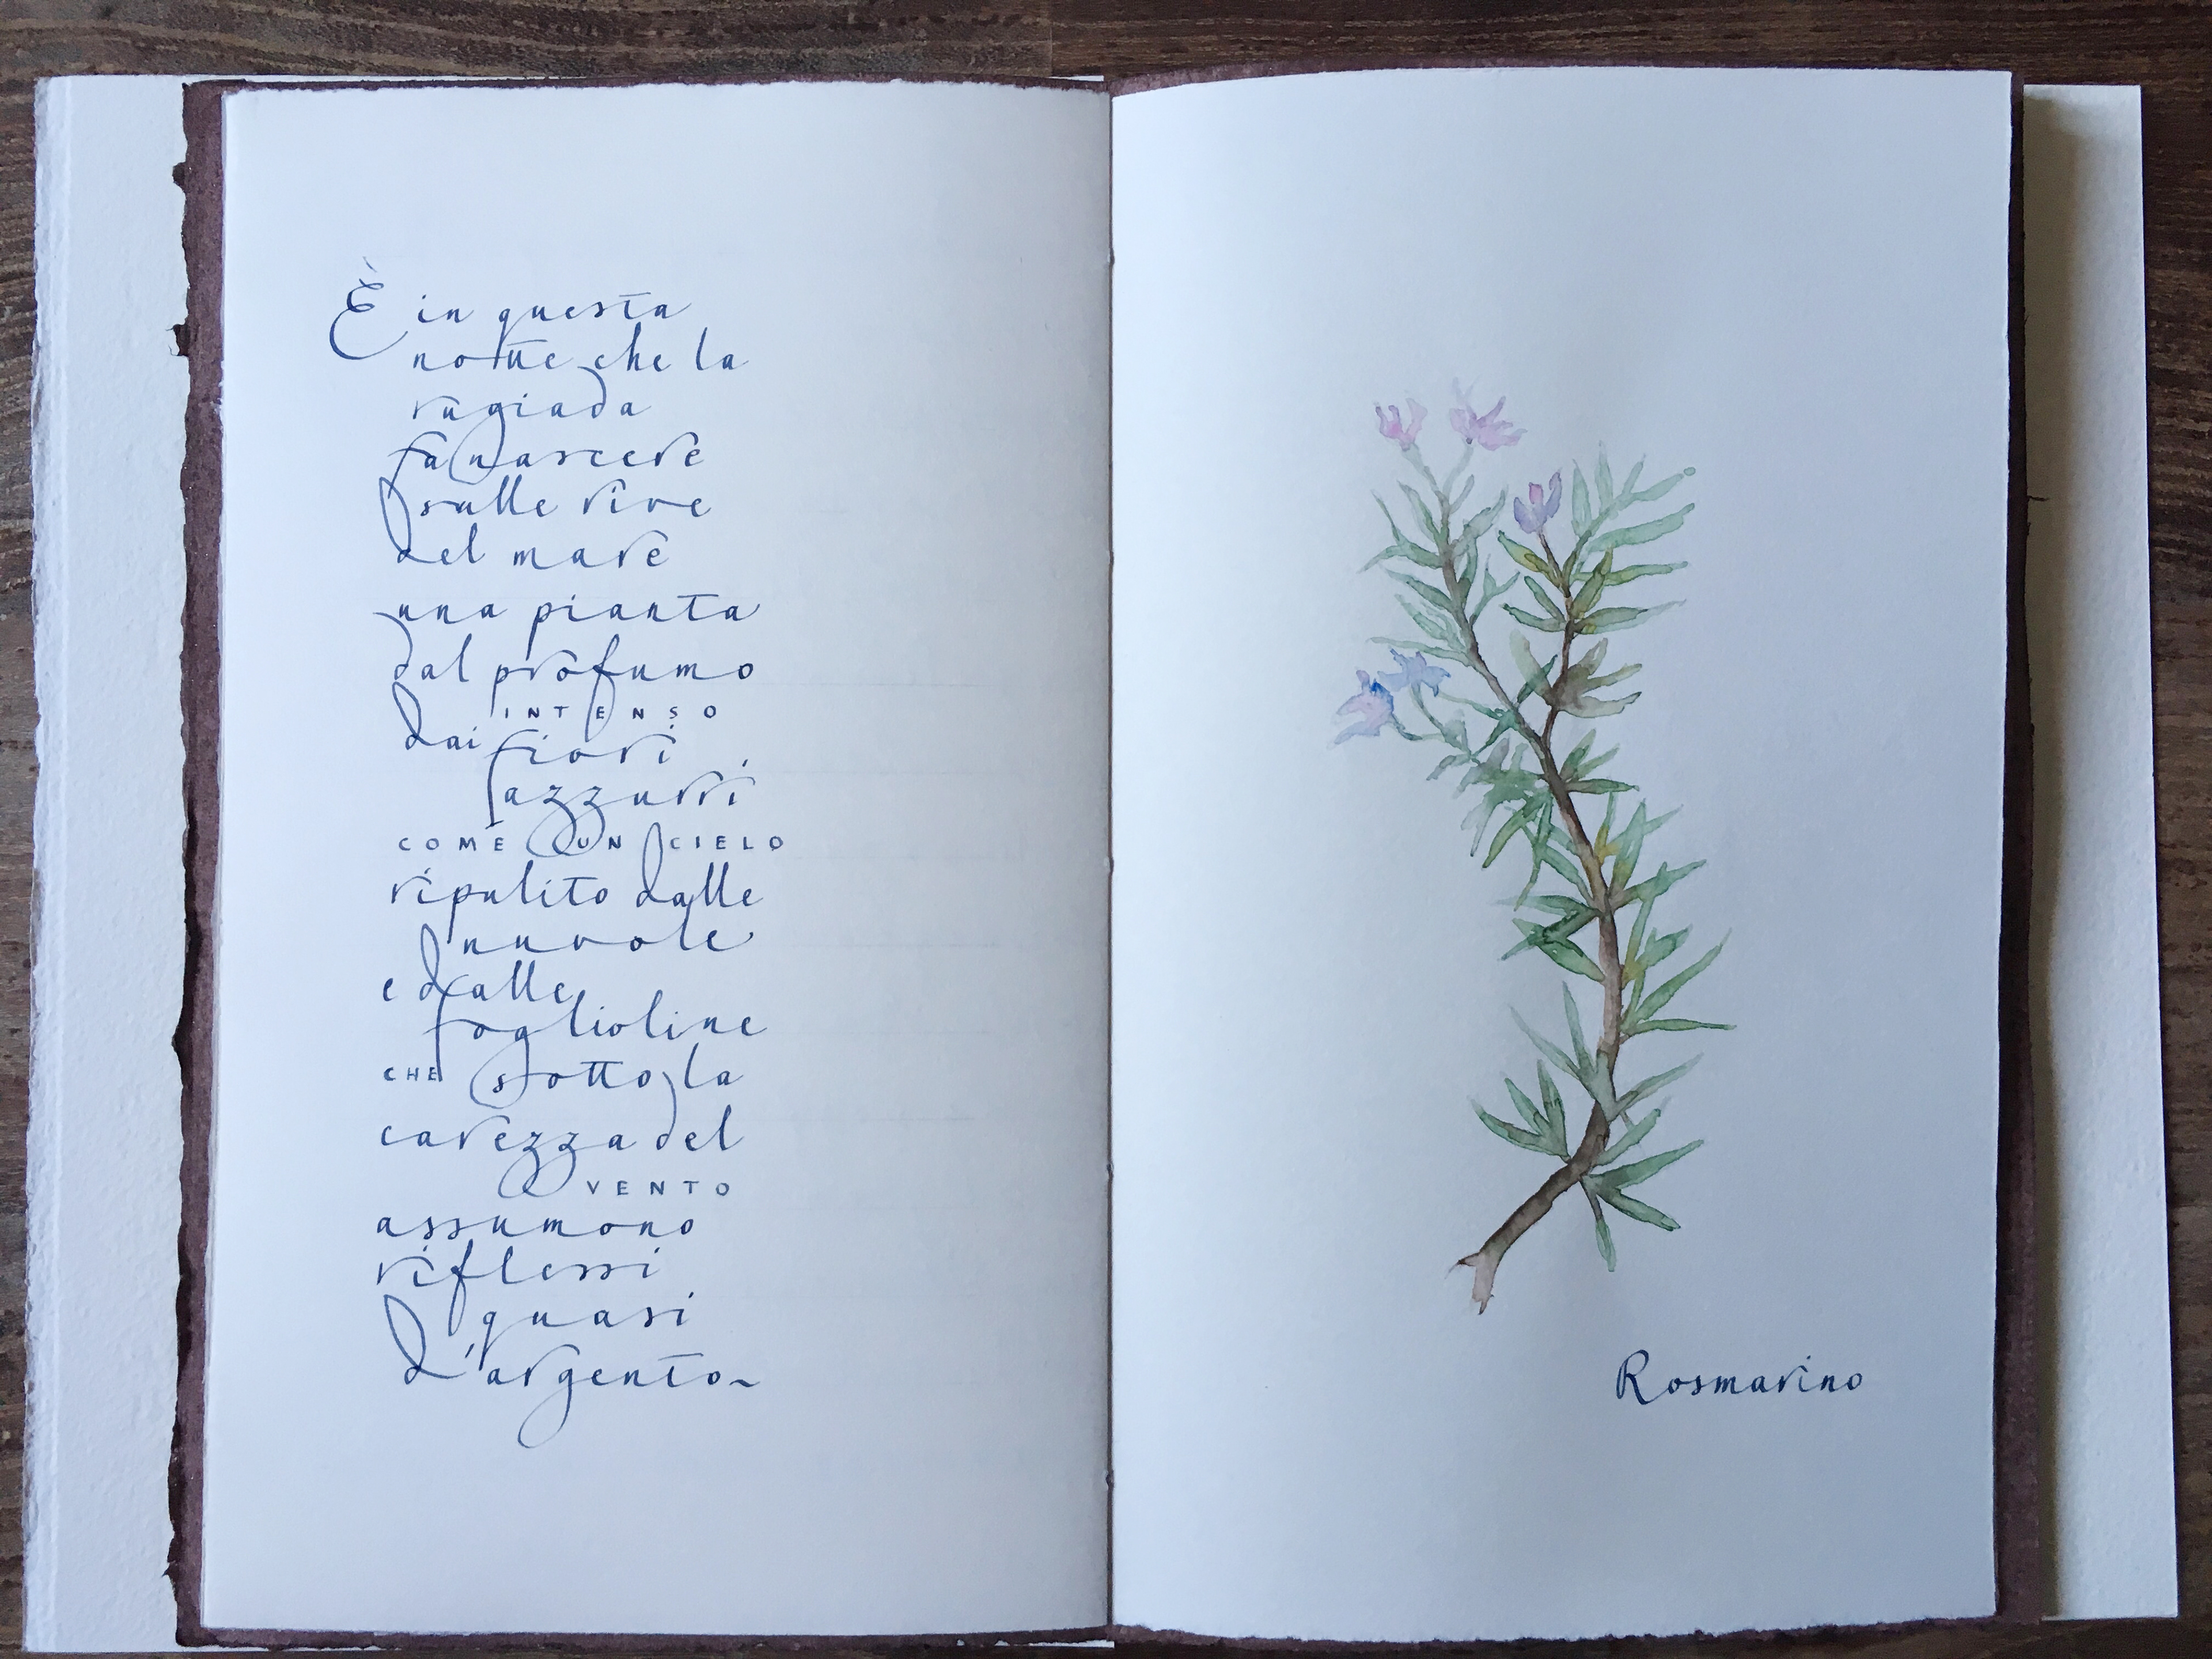 È in questa
notte che la
rugiada
fa nascere
sulle rive
del mare
una pianta
dal profumo
INTENSO
dai fiori
azzurri
COME UN CIELO
ripulito dalle
nuvole
e dalle
foglioline
CHE sotto la
carezza del
VENTO
assumono
riflessi
quasi
d'argento~
Rosmarino